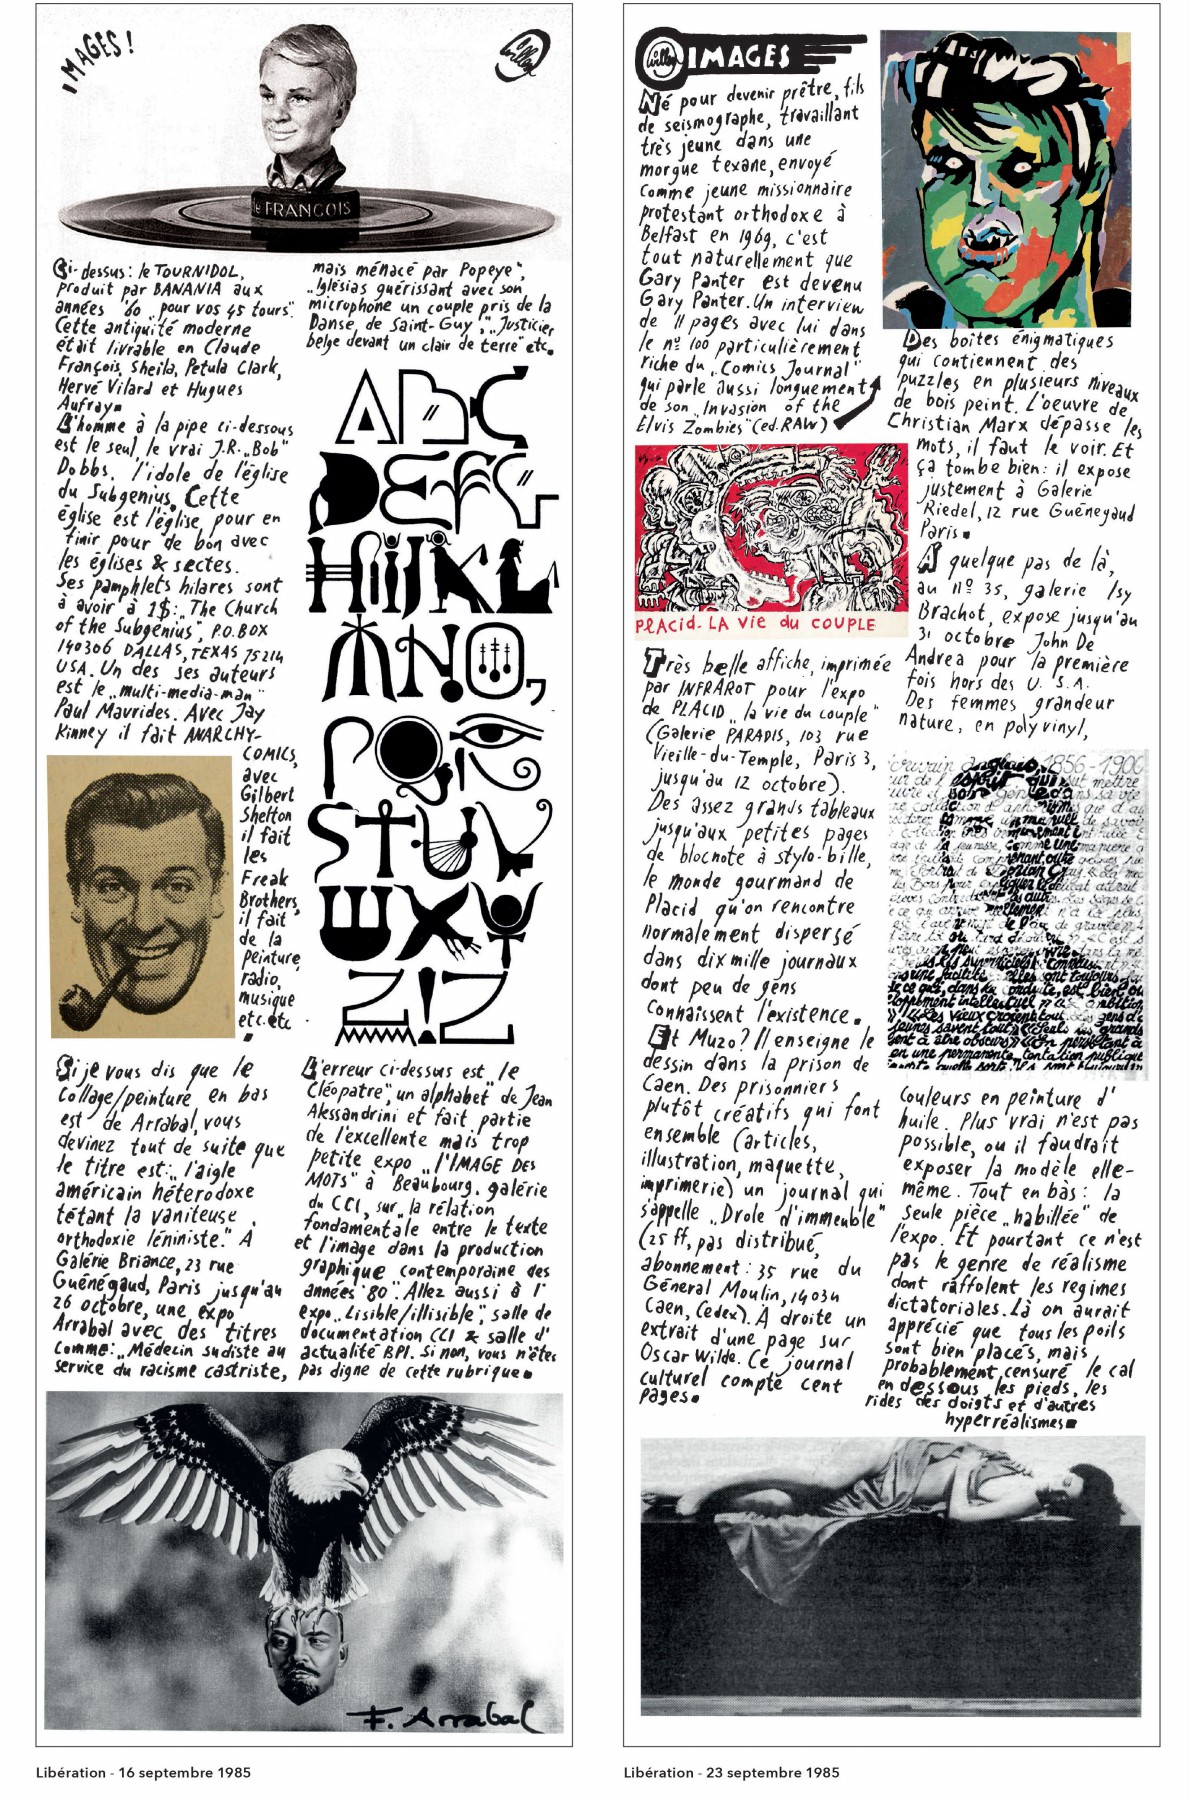 IMAGES!
Willem
le FRANÇOIS
Ci-dessus: le TOURNIDOL,
produit par BANANIA aux
années '60 „pour vos 45 tours".
Cette antiquité moderne
était livrable en Claude
François, Sheila, Petula Clark,
Hervé Vilard et Hugues
Aufray.
L'homme à la pipe ci-dessous
est le seul, le vrai J.R. „Bob"
Dobbs, l'idole de l'église
du Subgenius. Cette
église est l'église pour en
finir pour de bon avec
les églises & sectes.
Ses pamphlets hilares sont
à avoir à 1$: „The Church
of the Subgenius", P.O.BOX
140306 DALLAS, TEXAS 75214
USA. Un des ses auteurs
est le „multi-media-man"
Paul Mavrides. Avec Jay
Kinney il fait ANARCHY-
COMICS,
avec
Gilbert
Shelton
il fait
les
Freak
Brothers,
il fait
de la
peinture,
radio,
musique
etc. etc
.
Si je vous dis que le
collage/peinture en bas
est de Arrabal, vous
devinez tout de suite que
le titre est: „l'aigle
américain hétérodoxe
tétant la vaniteuse
orthodoxie léniniste." A
Galérie Briance, 23 rue
Guénégaud, Paris jusqu'au
26 octobre, une expo
Arrabal avec des titres
comme: „Médecin sudiste au
service du racisme castriste,
mais ménacé par Popeye",
„Iglésias guérissant avec son
microphone un couple pris de la
Danse de Saint-Guy", „Justicier
belge devant un clair de terre" etc.
ABC
DEFG
HIJKL
MNO,
PQR
STUV
WXY
Z!Z
L'erreur ci-dessus est „le
Cléopatre", un alphabet de Jean
Alessandrini et fait partie
de l'excellente mais trop
petite expo „l'IMAGE DES
MOTS" à Beaubourg, galérie
du CCI, sur „la rélation
fondamentale entre le texte
et l'image dans la production
graphique contemporaine des
années '80". Allez aussi à l'
expo „Lisible/illisible", salle de
documentation CCI & salle d'
actualité BPI. Si non, vous n'êtes
pas digne de cette rubrique.
F. Arrabal
Libération - 16 septembre 1985
Willem IMAGES
Né pour devenir prêtre, fils
de seismographe, travaillant
très jeune dans une
morgue texane, envoyé
comme jeune missionnaire
protestant orthodoxe à
Belfast en 1969, c'est
tout naturellement que
Gary Panter est devenu
Gary Panter. Un interview
de 11 pages avec lui dans
le nº 100 particulièrement
riche du „Comics Journal"
qui parle aussi longuement
de son „Invasion of the
Elvis Zombies" (ed. RAW)
PLACID - LA Vie du COUPLE
Très belle affiche, imprimée
par INFRAROT pour l'expo
de PLACID „la vie du couple"
(Galerie PARADIS, 103 rue
Vieille-du-Temple, Paris 3,
jusqu'au 12 octobre).
Des assez grands tableaux
jusqu'aux petites pages
de blocnote à stylo-bille,
le monde gourmand de
Placid qu'on rencontre
normalement dispersé
dans dix mille journaux
dont peu de gens
connaissent l'existence.
Et Muzo? Il enseigne le
dessin dans la prison de
Caen. Des prisonniers
plutôt créatifs qui font
ensemble (articles,
illustration, maquette,
imprimerie) un journal qui
s'appelle „Drole d'immeuble"
(25 ff, pas distribué,
abonnement: 35 rue du
Général Moulin, 14034
Caen, Cedex). A droite un
extrait d'une page sur
Oscar Wilde. Ce journal
culturel compte cent
pages.
Des boîtes énigmatiques
qui contiennent des
puzzles en plusieurs niveaux
de bois peint. L'oeuvre de
Christian Marx dépasse les
mots, il faut le voir. Et
ça tombe bien: il expose
justement à Galerie
Riedel, 12 rue Guénegaud
Paris.
A quelque pas de là,
au nº 35, galerie Isy
Brachot, expose jusqu'au
31 octobre John De
Andrea pour la première
fois hors des U.S.A.
Des femmes grandeur
nature, en polyvinyl,
écrivain anglais, 1856-1900
couleurs en peinture d'
huile. Plus vrai n'est pas
possible, ou il faudrait
exposer la modèle elle-
même. Tout en bàs: la
seule pièce „habillée" de
l'expo. Et pourtant ce n'est
pas le genre de réalisme
dont raffolent les regimes
dictatoriales. Là on aurait
apprécié que tous les poils
sont bien placés, mais
probablement censuré le cal
en dessous les pieds, les
rides des doigts et d'autres
hyperréalismes
Libération - 23 septembre 1985